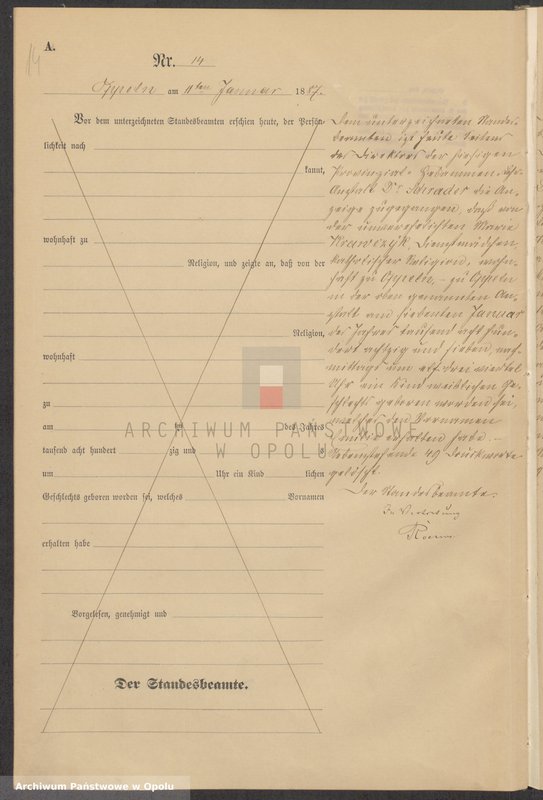 A.
14
Nr. 14
Oppeln am 11ten Januar 1887.
Vor dem unterzeichneten Standesbeamten erschien heute, der Persön-
lichkeit nach
kannt,
wohnhaft zu
Religion, und zeigte an, daß von der
Religion,
wohnhaft
zu
am ten des Jahres
tausend acht hundert zig und
um Uhr ein Kind lichen
Geschlechts geboren worden sei, welches Vornamen
erhalten habe
Vorgelesen, genehmigt und
Der Standesbeamte.
Dem unterzeichneten Standes-
beamten ist heute Seitens
des Direktors der hiesigen
Provinzial-Hebammen-
Anstalt Dr. Schrader die An-
zeige zugegangen, daß von
der unverehelichten Marie
Krawczyk, Dienstmädchen,
katholischer Religion, wohn-
haft zu Oppeln, zu Oppeln
in der oben genannten An-
stalt am siebenten Januar
des Jahres tausend acht hun-
dert achtzig und sieben, nach-
mittags um elf drei viertel
Uhr ein Kind weiblichen Ge-
schlechts geboren worden sei,
welches den Vornamen
erhalten habe.
Vorstehende 49 Druckworte
gelöscht.
Der Standesbeamte.
In Vertretung
ARCHIWUM PAŃSTWOWE
W OPOLU
Archiwum Państwowe w Opolu